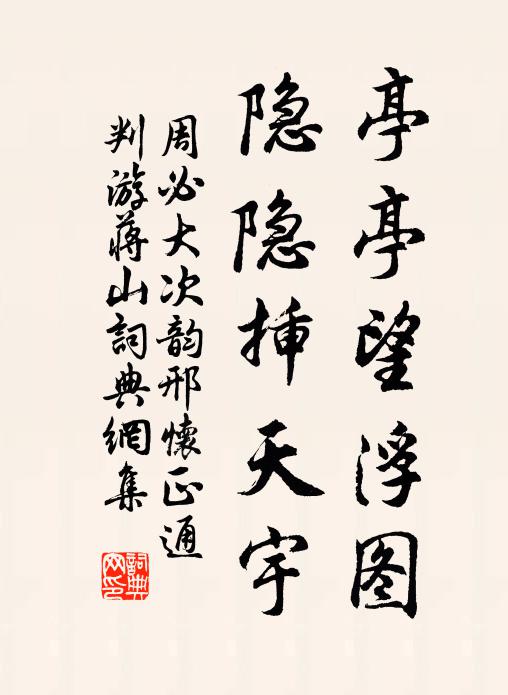 亭亭望浮图
隐隐挿天宇
周必大次韵邢懷正通
判游蒋山詞典網集
詞典
网印